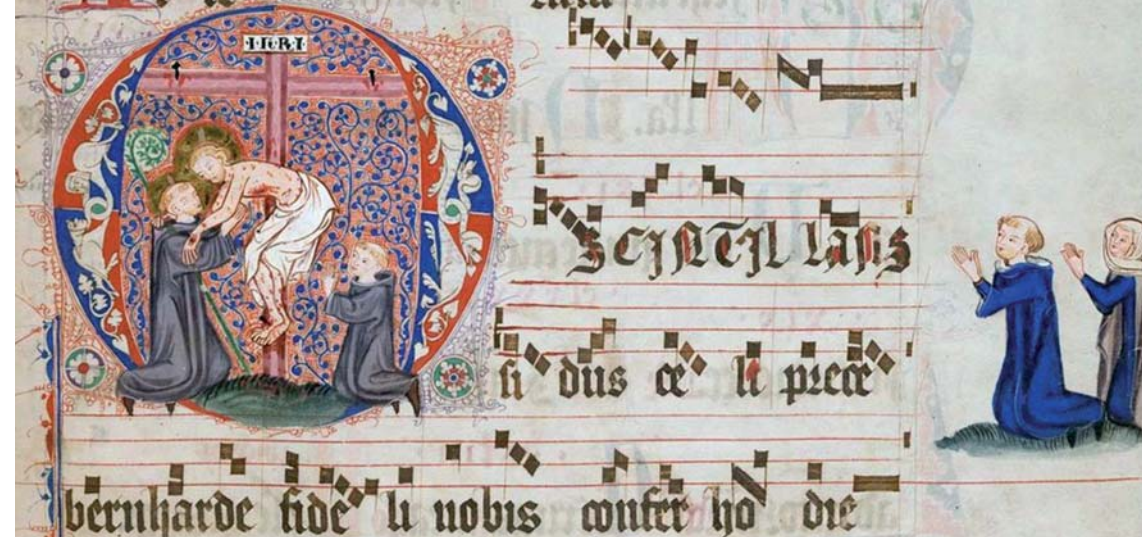 INRI
O SCINTIL LANS
si dus ce li prece
bernharde fide li nobis confer ho die